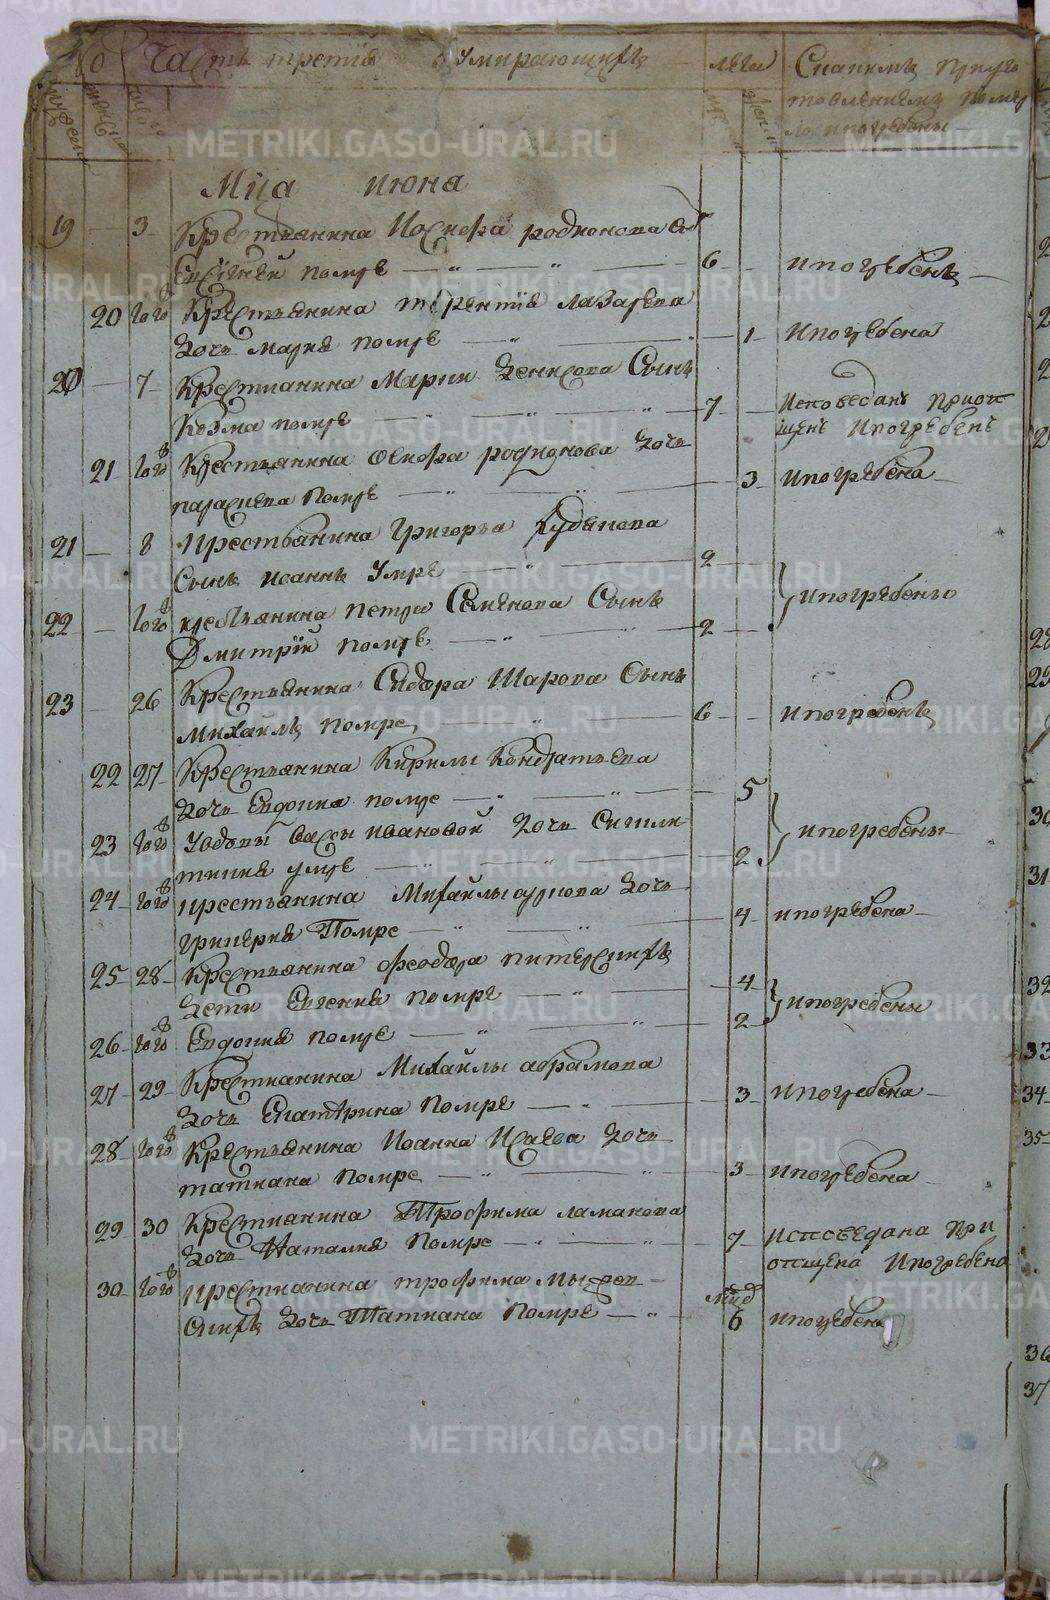 Часть третия о Умирающихъ лета Скакимъ приуго
товлениемъ помер
ло ипогребены
Мца июня
19 3 Крестьянина Иосифа родионова
Сергiей помре 6 ипогребенъ
20 того Крестьянина терентiя лазарева
дочь мария помре 1 ипогребена
20 7 Крестианина Марки денисова Сынъ
Козма помре 7 Исповеданъ приоп
щенъ Ипогребенъ
21 того Крестьянина осифа родионова дочь
параскева помре 3 ипогребена
21 8 крестьянина Григорья
Сынъ иоаннъ умре 2
ипогребены
22 того крестьянина петра Семенова Сынъ
Дмитрiй помре 2
23 26 Крестьянина Сидора Шарова Сынъ
михаилъ помре 6 ипогребенъ
22 27 Крестьянина Кирилы Кондратьева
дочь Евдокия помре 5
ипогребены
23 того Удовы васы ивановой дочь Сигкли
тикия умре 2
24 того крестьянина Михайлы суркова дочь
гликерия Помре 4 ипогребена
25 28 Крестьянина феодора питерскихъ
дети Евгения помре 4
ипогребены
26 того Евдокия помре 2
27 29 Крестианина Михайлы абрамова
дочь Екатерина помре 3 ипогребена
28 того Крестьянина Иоанна Исаева дочь
татиана помре 3 ипогребена
29 30 Крестианина Трофима ламанова
дочь Наталия помре 7 исповедана при
опщена Ипогребена
30 того крестианина трофима
скихъ дочь Татиана помре 6 ипогребена
METRIKI.GASO-URAL.RU